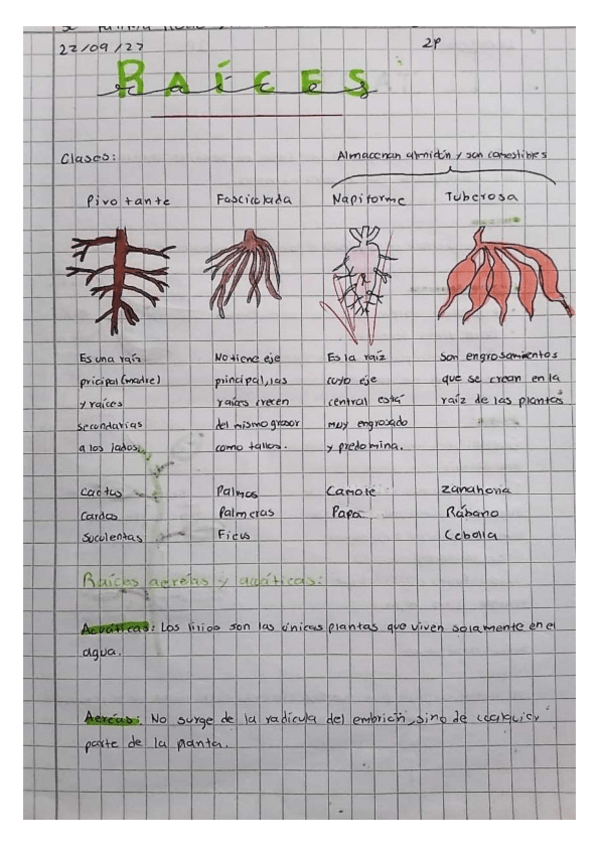 22/09/23
2P
RAÍCES
raíces
Clases:
Almacenan almidón y son comestibles
Pivotante Fasciculada Napiforme Tuberosa
Es una raíz No tiene eje Es la raíz son engrosamientos
pricipal (madre) principal, las cuyo eje que se crean en la
y raíces raíces crecen central está raíz de las plantas
secundarias del mismo grosor muy engrosado
a los lados. como tallos. y predomina.
Cactus Palmas Camote zanahoria
Cardos Palmeras Papa Rábano
Suculentas Ficus Cebolla
Raíces aereías y acuáticas:
Acuáticas: Los lirios son las únicas plantas que viven solamente en el
agua.
Aereas: No surge de la radícula del embrión, sino de cualquier
parte de la planta.